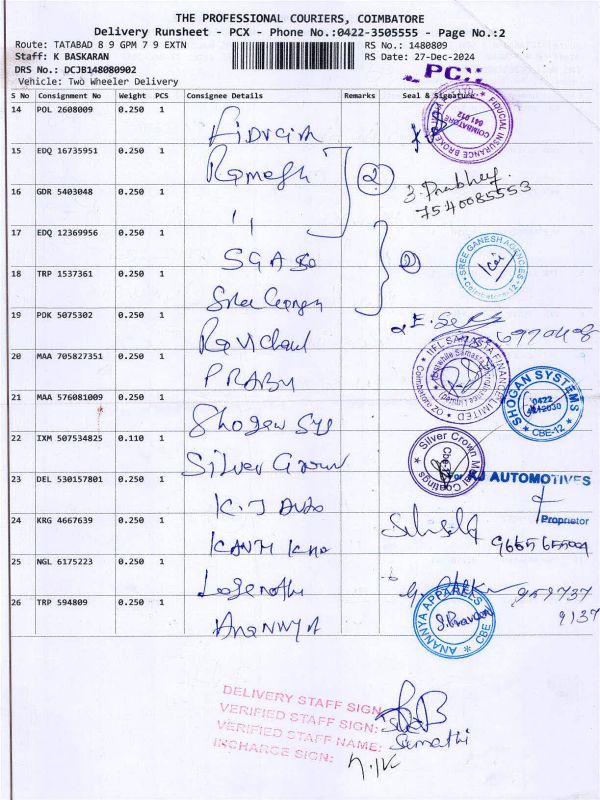 THE PROFESSIONAL COURIERS, COIMBATORE
Delivery Runsheet - PCX - Phone No.:0422-3505555 - Page No.:2
Route: TATABAD 8 9 GPM 7 9 EXTN
RS No.: 1480809
Staff: K BASKARAN
RS Date: 27-Dec-2024
DRS No.: DCJB148080902
Vehicle: Two Wheeler Delivery
PCX
S No Consignment No Weight PCS Consignee Details Remarks Seal & Signature
14 POL 2608009 0.250 1
FIDUCIARY INSURANCE BROKER
COIMBATORE
641 012
15 EDQ 16735951 0.250 1 Ramesh
2
16 GDR 5403048 0.250 1 ,,
J. Prabhey.
7540085553
17 EDQ 12369956 0.250 1
2
SREE GANESH AGENCIES
Coimbatore-12
18 TRP 1537361 0.250 1 Sree Ganesh
19 PDK 5075302 0.250 1 Ravichand
20 MAA 705827351 0.250 1 PRABU
IIFL SAMASTA FINANCE LIMITED
21 MAA 576081009 0.250 1 Shogan Sys
SHOGAN SYSTEMS
0422
CBE-12
22 IXM 507534825 0.110 1 Silver Crown
Silver Crown Metal Coatings
CBE-12
23 DEL 530157801 0.250 1 K.J Auto
For KJ AUTOMOTIVES
Proprietor
24 KRG 4667639 0.250 1
25 NGL 6175223 0.250 1 Logenathi
959737
9137
26 TRP 594809 0.250 1 Anannya
ANANNYA APPARELS
CBE
DELIVERY STAFF SIGN
VERIFIED STAFF SIGN:
VERIFIED STAFF NAME: Sumathi
INCHARGE SIGN: